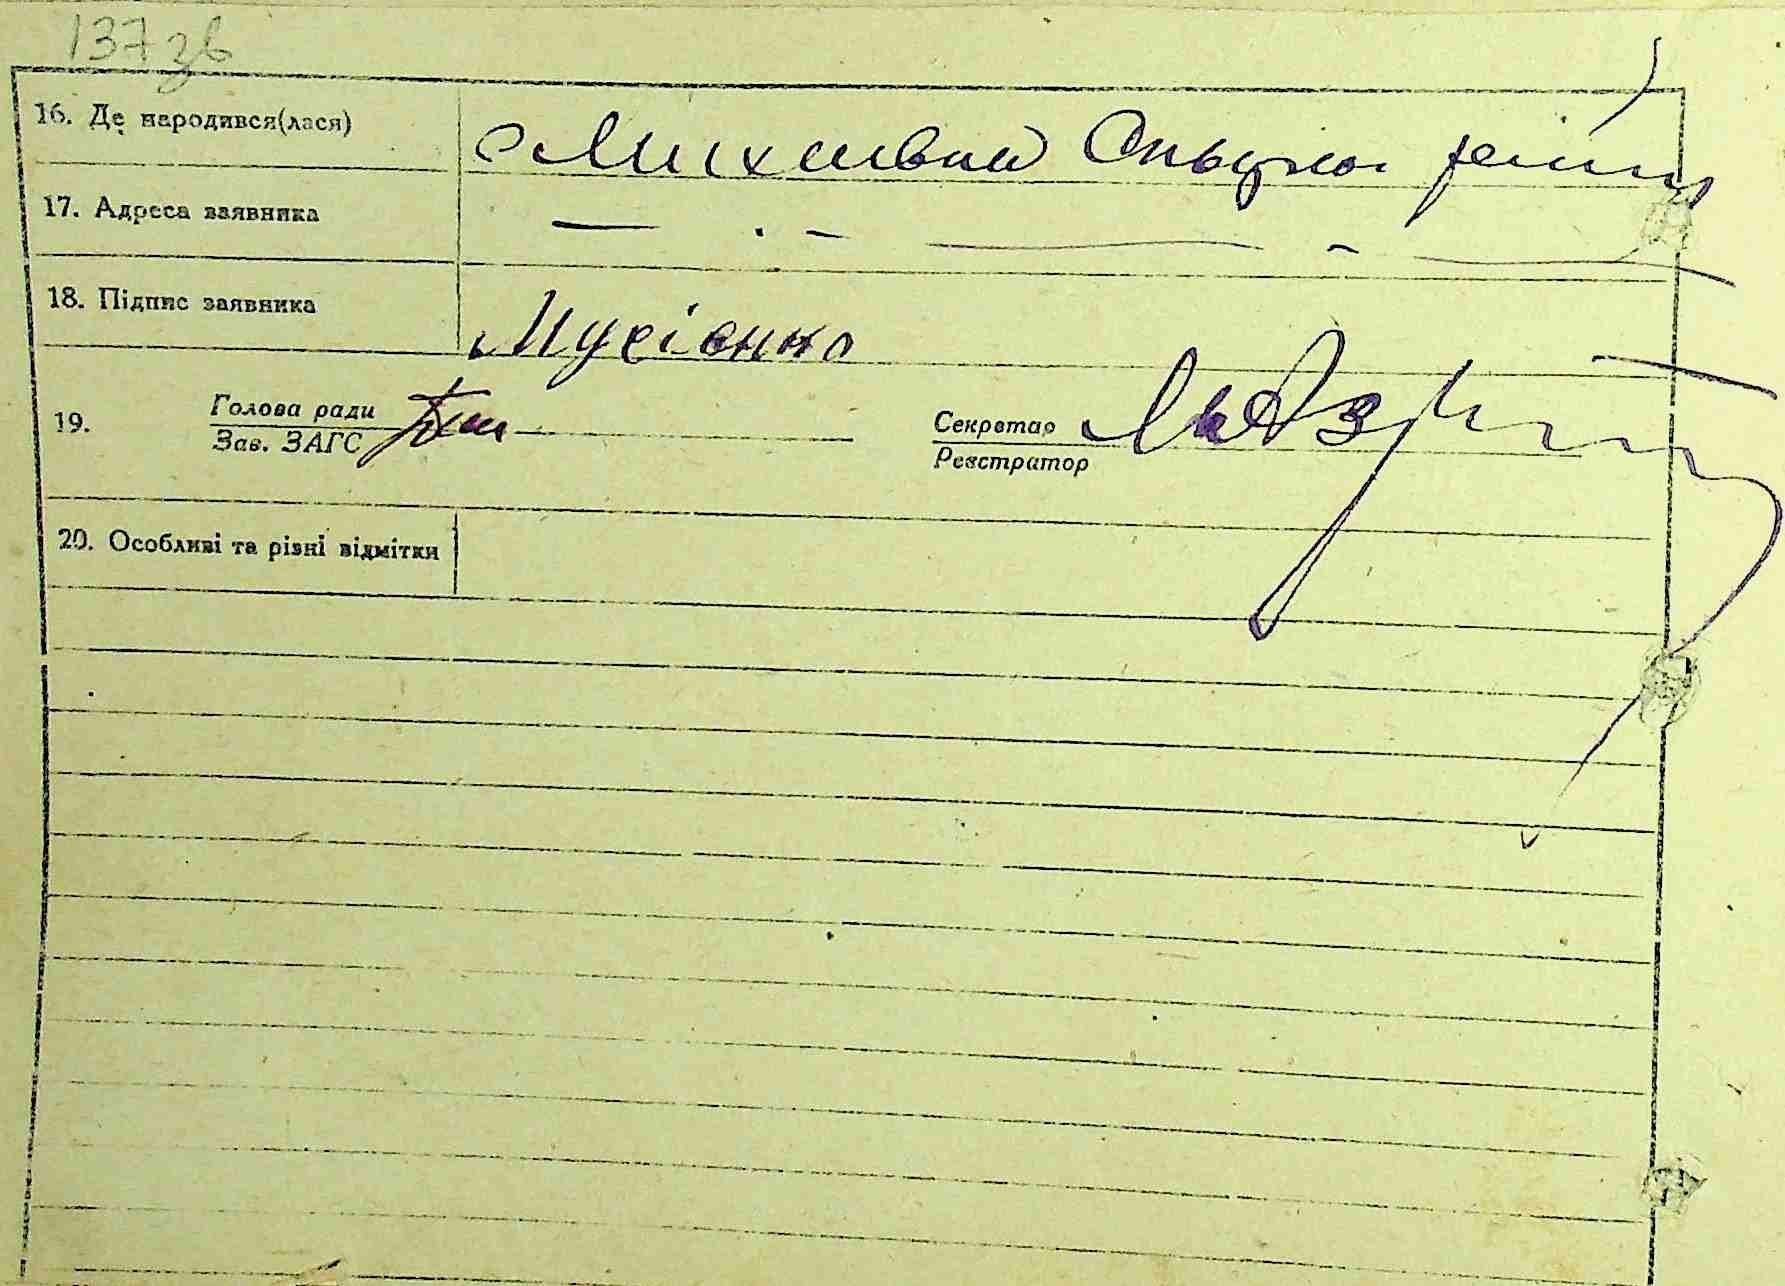 137 зв
16. Де народився(лася) с Михайлівка
17. Адреса заявника — . – — - —
18. Підпис заявника Мусієнко
19. Голова ради Секретар
Зав. ЗАГС Реєстратор
20. Особливі та різні відмітки